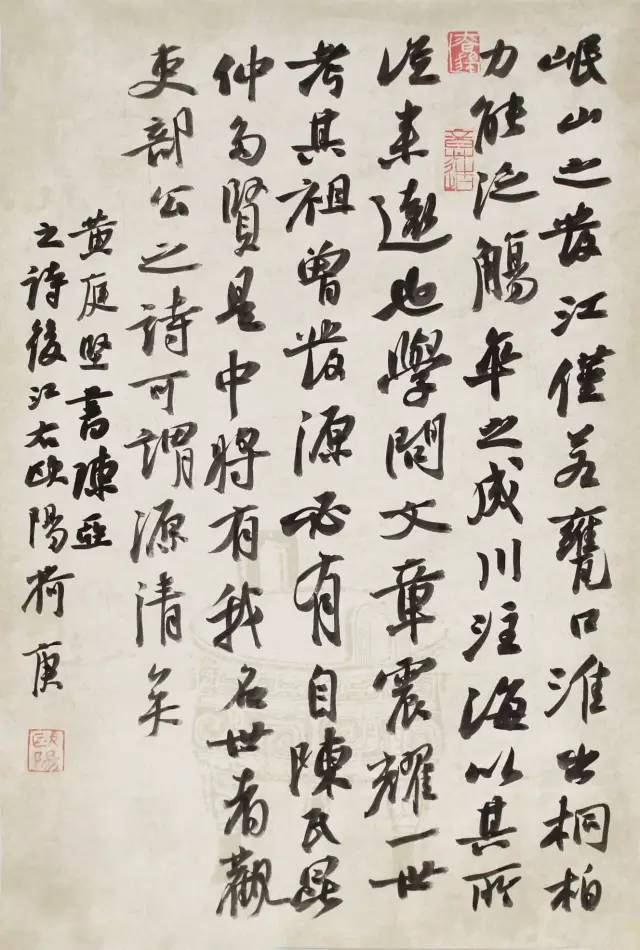 岷山之發江僅若甕口淮出桐柏
力能泛觴卒之成川注海以其所
從来遠也學問文章震耀一世
考其祖曾發源必有自陳氏昆
仲多賢是中將有我名世者觀
吏部公之詩可謂源清矣
黄庭堅書陳亞
之詩後江右歐陽荷庚
歐陽